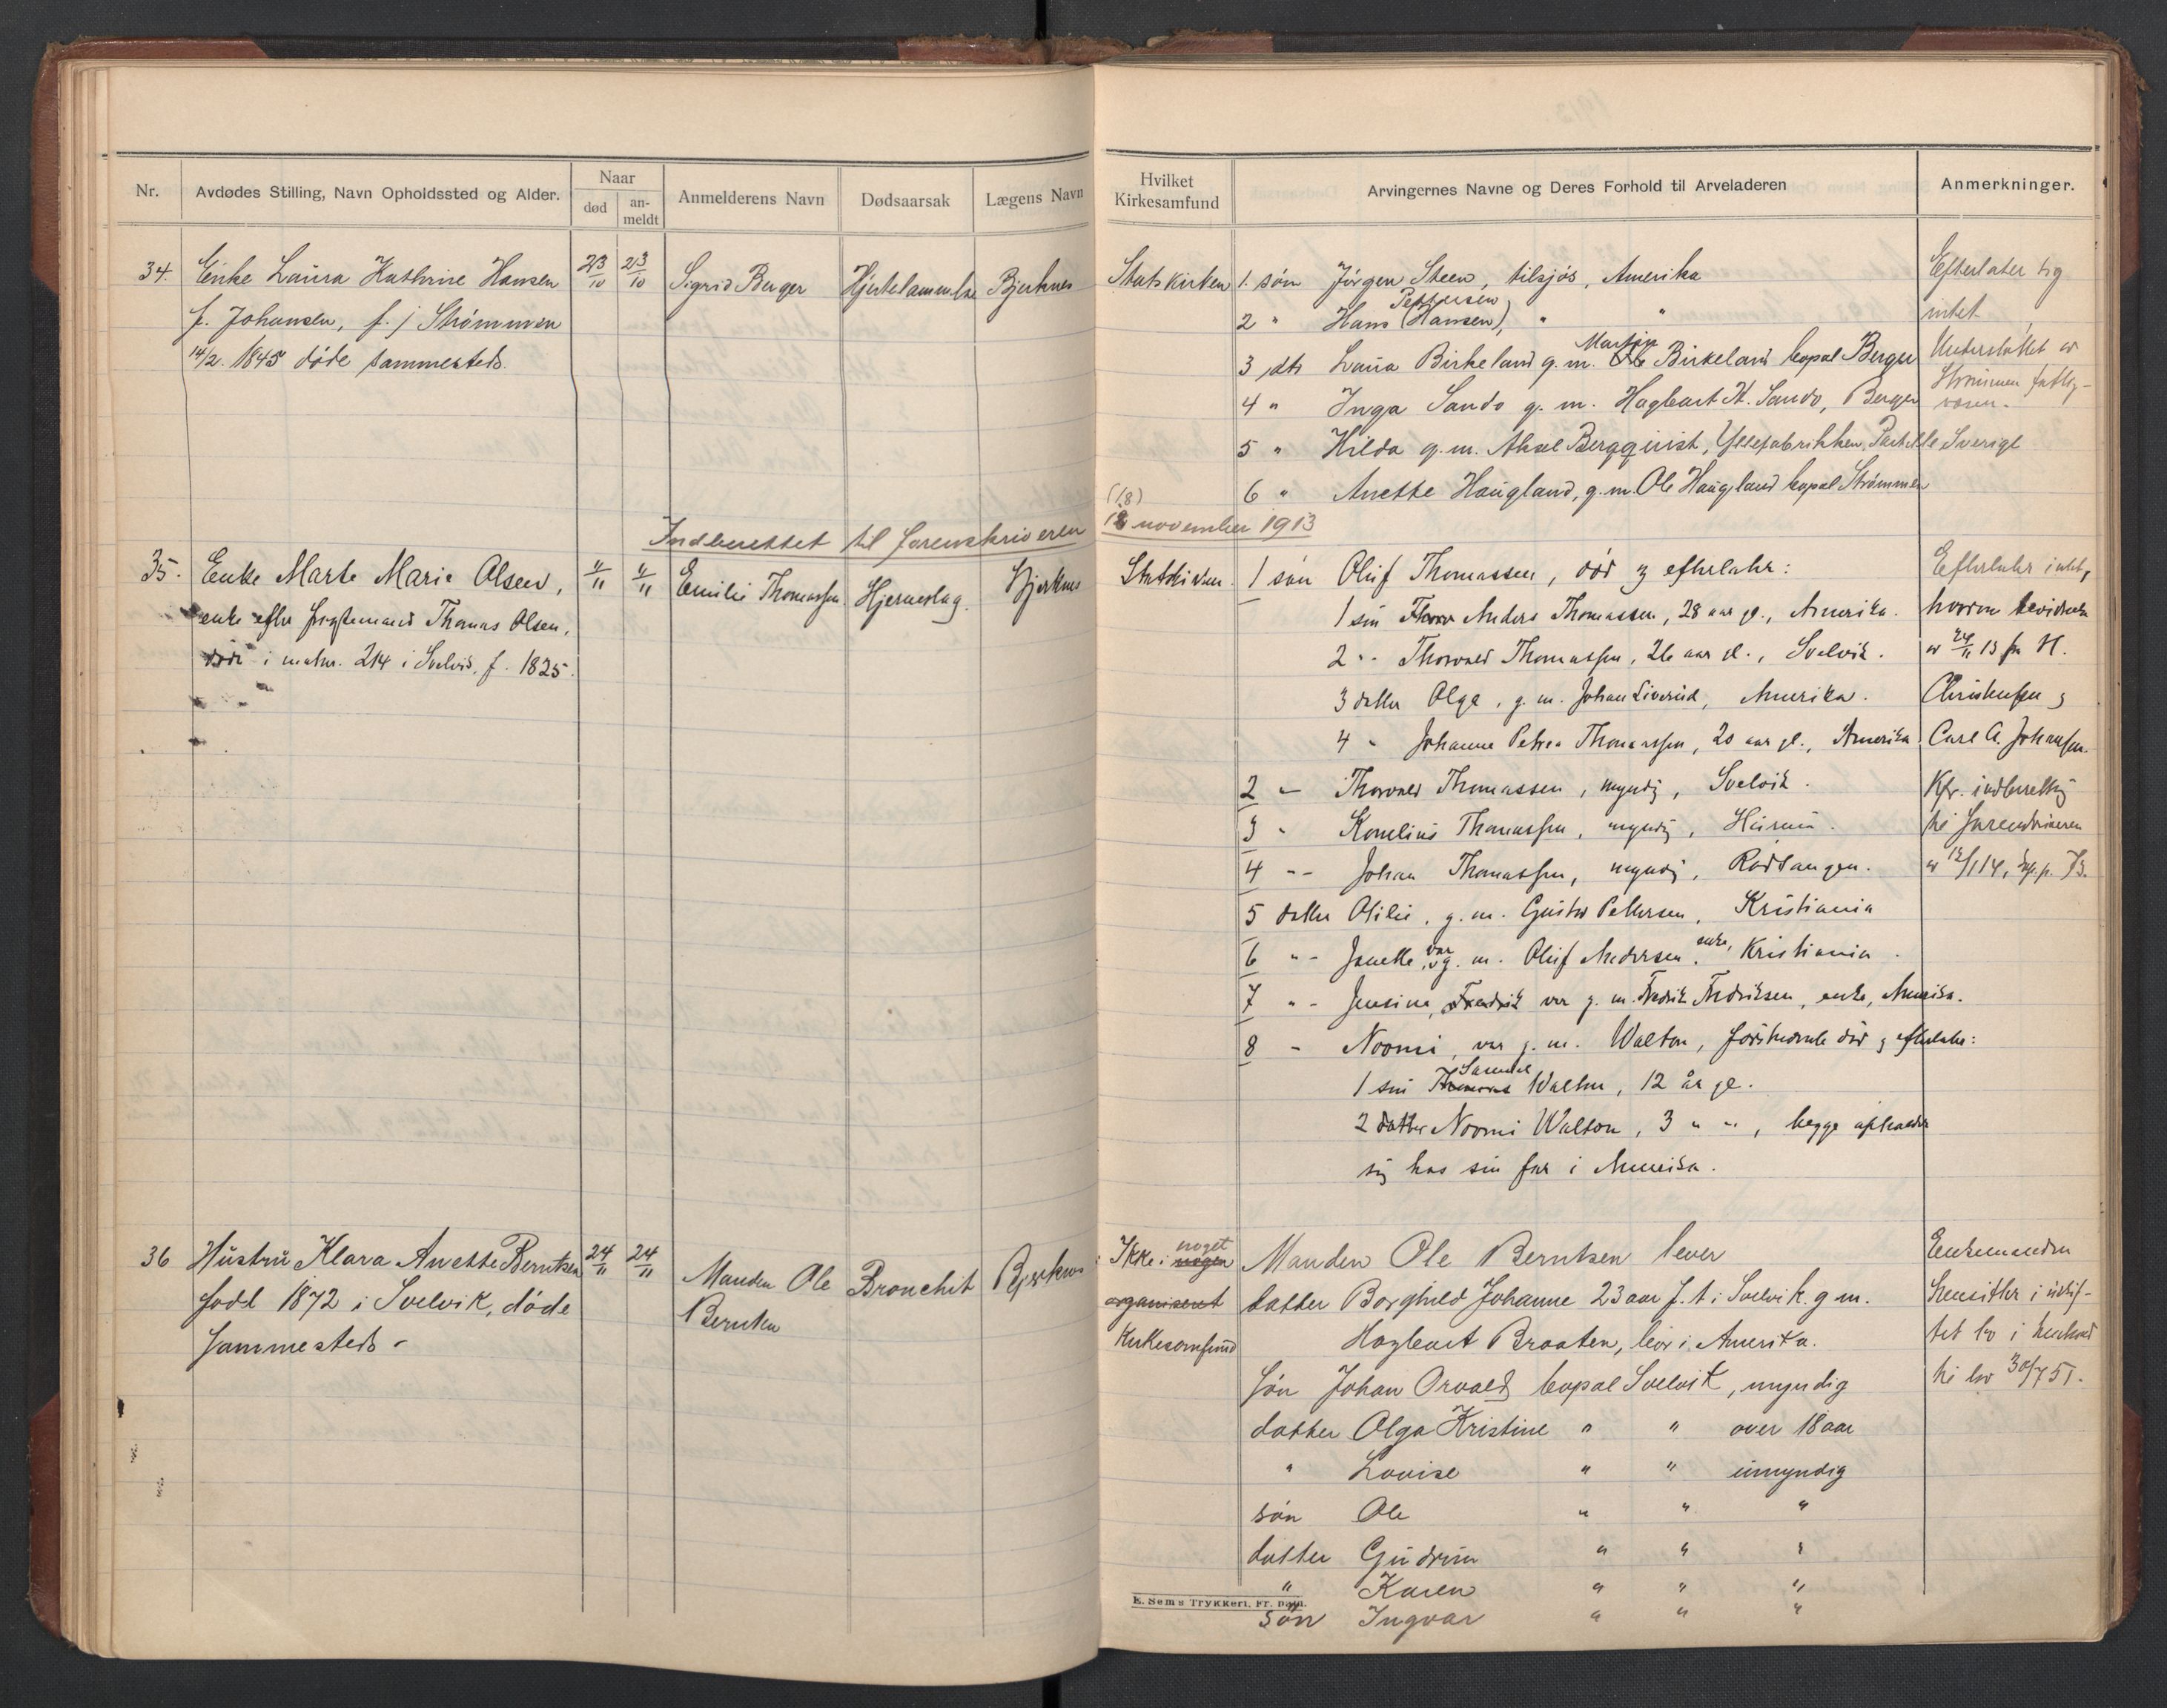 Nr.
Avdødes Stilling, Navn Opholdssted og Alder.
Naar
død
an-
meldt
Anmelderens Navn
Dødsaarsak
Lægens Navn
34.
Enke Laura Kathrine Hansen
f. Johansen, f. i Strømmen
14/2. 1845 døde sammesteds.
23/10
23/10
Sigrid Berger
Hjertelammelse
Bjerknes
Indberettet til Sorenskriveren
35.
Enke Marte Marie Olsen,
enke efter Thomas Olsen,
døde i matr. 214 i Svelvik, f. 1825.
11/11
11/11
Emilie Thomassen
Hjerneslag.
Bjerknes
36
Hustru Klara Anette Berntsen
født 1872 i Svelvik, døde
sammesteds -
24/11
24/11
Manden Ole
Berntsen
Bronchit
Bjerknes
Hvilket
Kirkesamfund
Arvingernes Navne og Deres Forhold til Arveladeren
Anmerkninger.
Statskirken
1. søn Jørgen Steen, tilsjøs, Amerika
Pettersen
2 " Hans (Hansen), " "
Martin
3 dtr Laura Birkeland g.m. Ole Birkeland bopæl Berger
4 " Inga Sando g. m. Hagbart H. Sando, Berger
5 " Hilda g. m. Aksel Bergqvist, Yllefabrikken, Sverige
6 " Anette Haugland, g.m. Ole Haugland bopæl Strømmen
Efterlater sig
intet
Understøttet av
Strømmen fattig-
væsen.
(18)
18 november 1913
Statskirken.
1 søn Oluf Thomassen, død og efterlater:
1 søn Anders Thomassen, 28 aar gl., Amerika.
2 " - Thorvald Thomassen, 26 aar gl., Svelvik.
3 datter Olga, g. m. Johan Liverud, Amerika.
4 - Johanne Petrea Thomassen, 20 aar gl., Amerika
2 - Thorvald Thomassen, myndig, Svelvik.
3 " Kornelius Thomassen, myndig, Hurum.
4 " - Johan Thomassen, myndig, Rødtangen.
5 datter Otilie, g. m. Gustav Pettersen, Kristiania
6 " - Janette, var g. m. Oluf Andersen, enke, Kristiania.
7 " - Jensine, Fredrik var g. m. Fredrik Fredriksen, enke, Amerika.
8 - Noomi, var g. m. Walton, førstnævnte død og efterlater:
Samuel
1 søn Thomas Walton, 12 år gl.
2 datter Noomi Walton, 3 " ", begge opholder
sig hos sin far i Amerika.
Efterlater intet,
hvorom bevidnelse
av 24/11 13 fra H.
Christensen og
Carl A. Johansen.
Kfr. indberetning
til Sorenskriveren
av 12/1 14,
Ikke i nogen noget
organiseret
Kirkesamfund
Manden Ole Berntsen lever
datter Borghild Johanne 23 aar f. t. i Svelvik. g. m.
Hagbart Braaten, lever i Amerika.
Søn Johan Osvald, bopæl Svelvik, myndig
datter Olga Kristine " " over 18 aar
" Lovise " " umyndig
søn Ole " " "
datter Gudrun " " "
" Karen " " "
søn Ingvar " " "
Enkemanden
hensitter i uskif-
tet bo i henhold
til lov 30/7 51.
E. Sem's Trykkeri, Fr. hald.